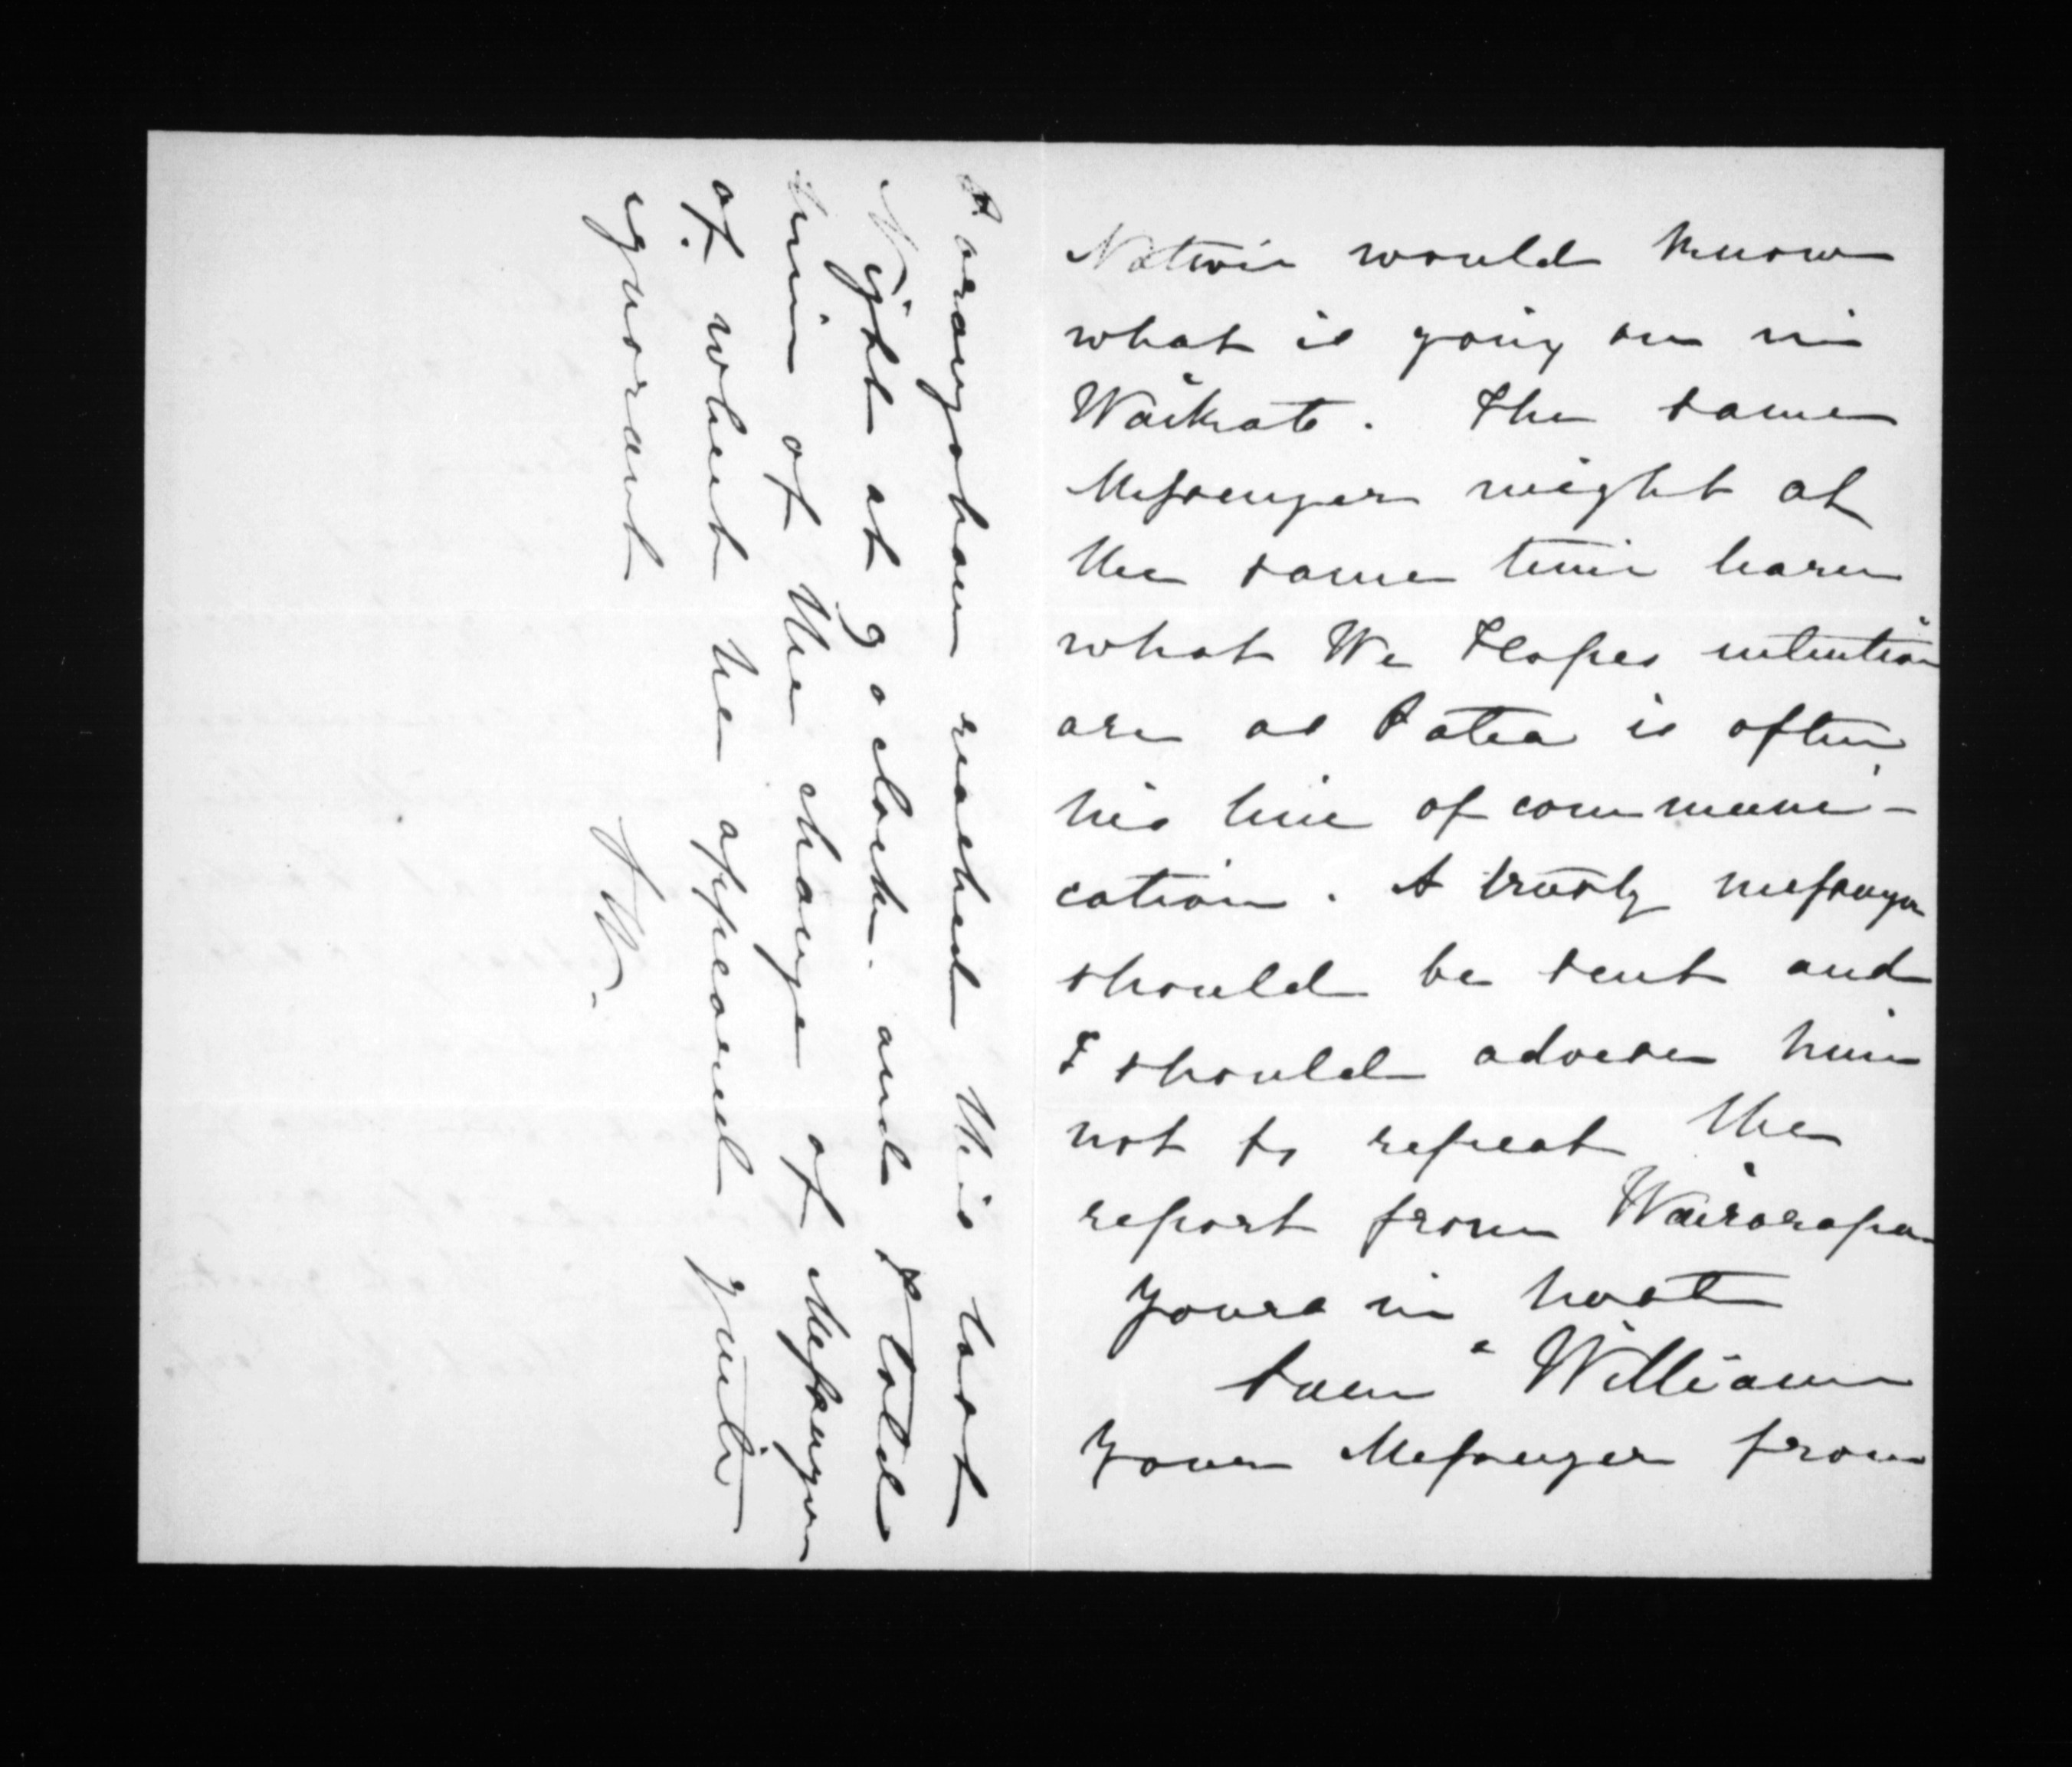 Natives would know
what is going on in
Waikato. The same
Messenger might at
the same time learn
what We Hapes intention
are as Patea is often
his line of communi-
cation. A trusty messenger
should be sent and
I should advise him
not to repeat the
report from Wairarapa
Yours in haste
Sam^l Williams
Your Messenger from
Porangahau reached this last
Night at 9 o clock. and I told
him of the change of Messenger
of which he appeared quite
ignorant
S W.